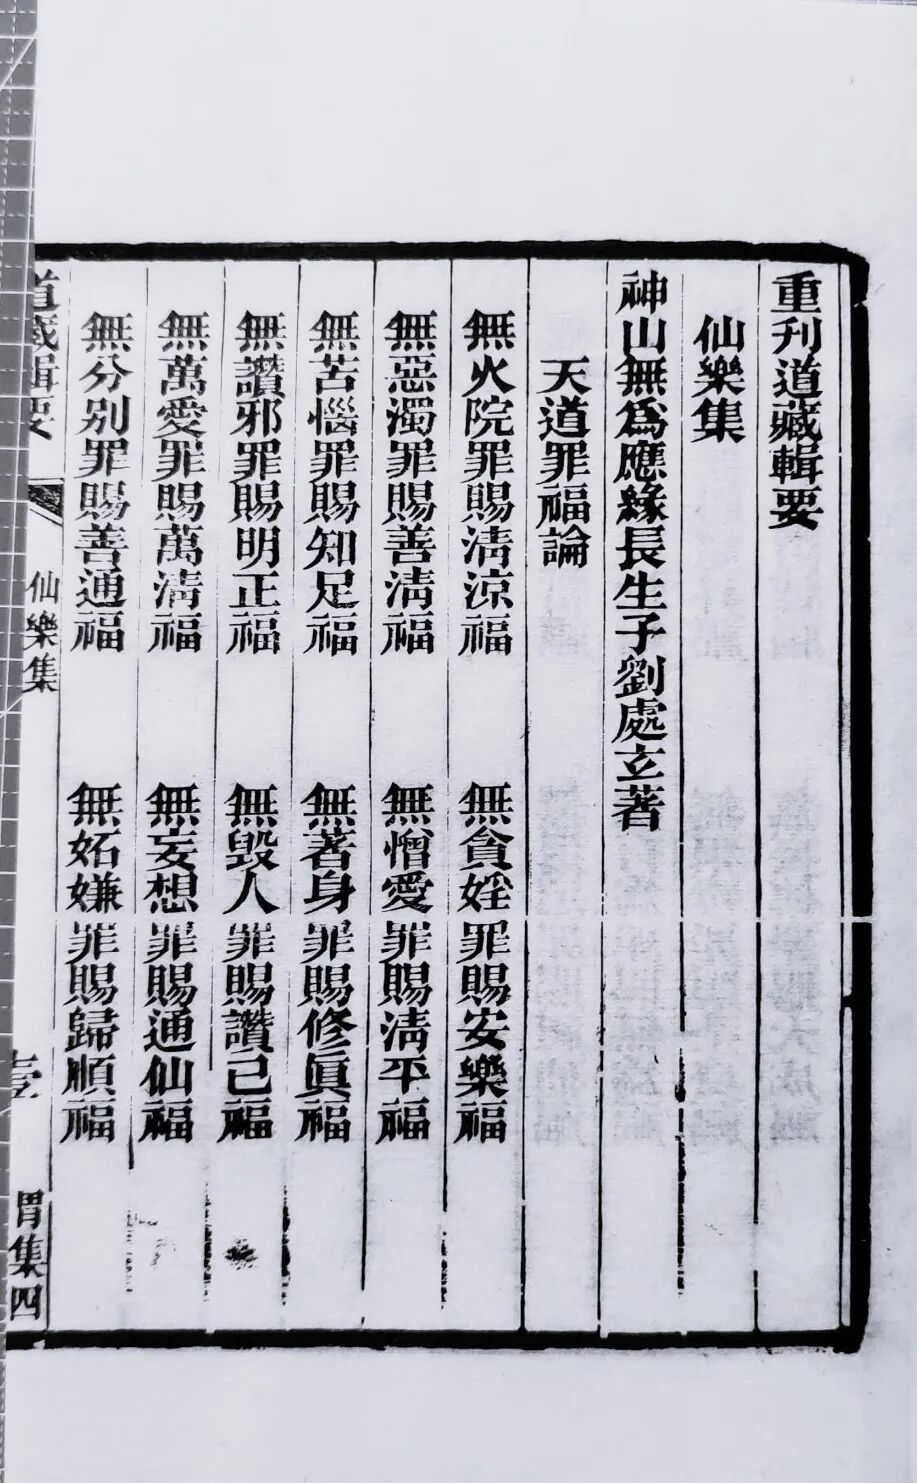 重刊道藏輯要
仙樂集
神山無爲應緣長生子劉處玄著
天道罪福論
無火院罪賜清涼福 無貪婬罪賜安樂福
無惡濁罪賜善清福 無憎愛罪賜清平福
無苦惱罪賜知足福 無著身罪賜修眞福
無讚邪罪賜明正福 無毀人罪賜讚己福
無萬愛罪賜萬清福 無妄想罪賜通仙福
無分別罪賜善通福 無妬嫌罪賜歸順福
道藏輯要 仙樂集 壹 胃集四